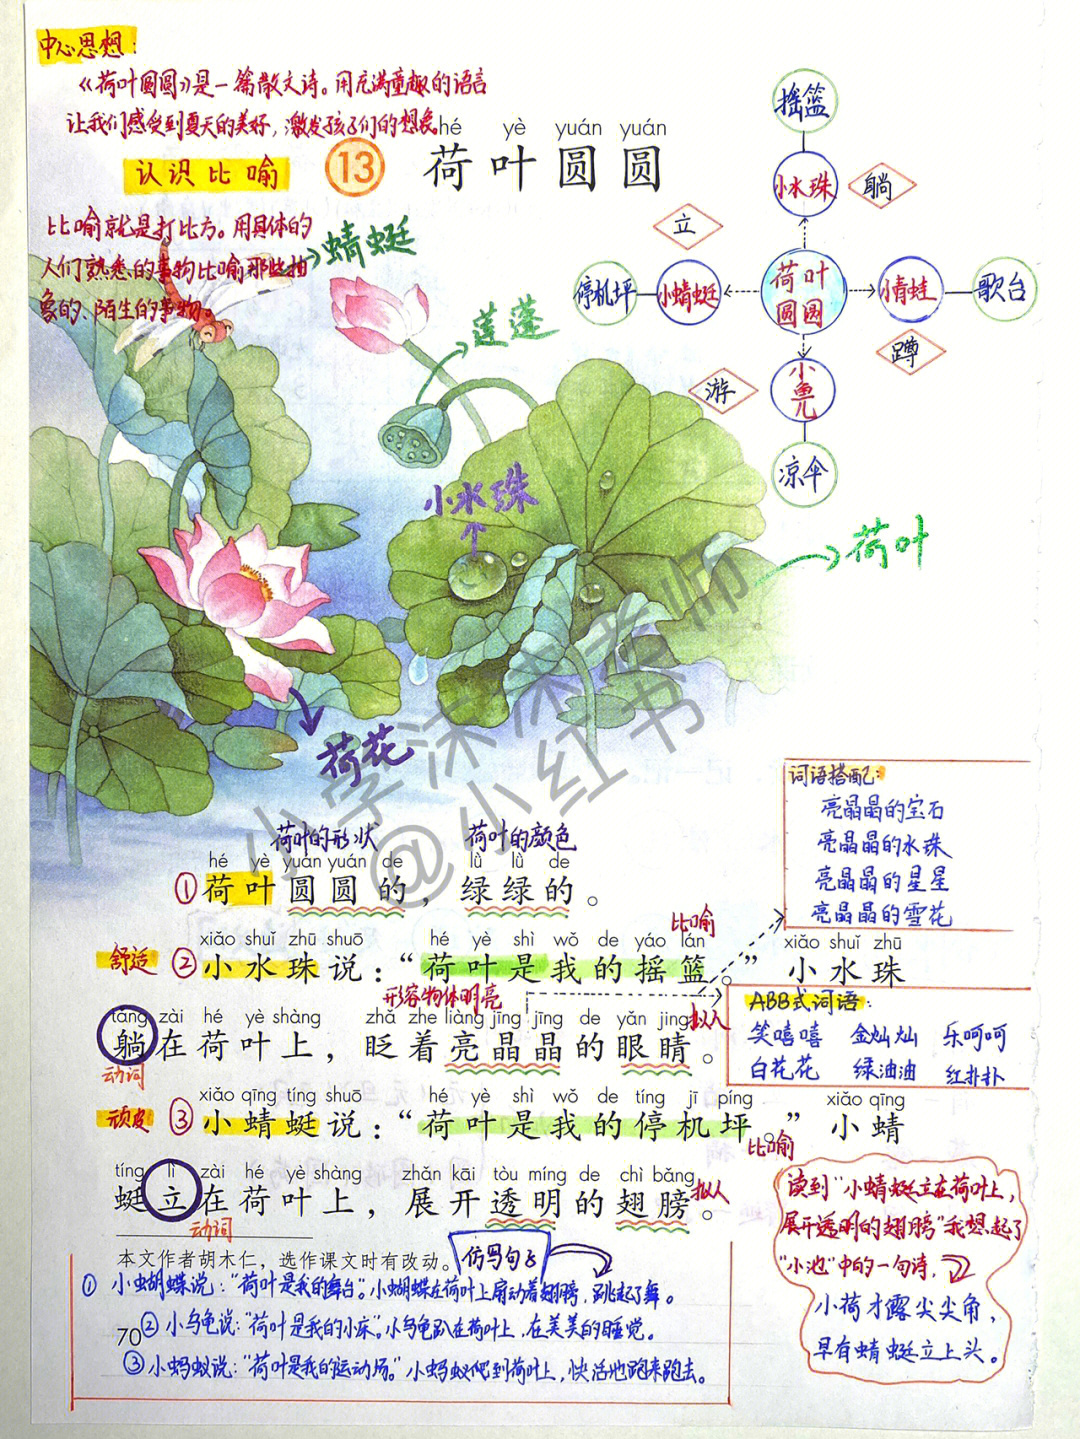 中心思想：
《荷叶圆圆》是一篇散文诗。用充满童趣的语言
让我们感受到夏天的美好，激发孩子们的想象。
hé yè yuán yuán
13 荷叶圆圆
认识比喻
比喻就是打比方。用具体的
人们熟悉的事物比喻那些抽
象的、陌生的事物。
蜻蜓
莲蓬
小水珠
荷叶
荷花
摇篮
小水珠
躺
立
停机坪
小蜻蜓
荷叶
圆圆
小青蛙
歌台
蹲
游
小鱼儿
凉伞
小学沐沐老师
@小红书
词语搭配：
亮晶晶的宝石
亮晶晶的水珠
亮晶晶的星星
亮晶晶的雪花
荷叶的形状 荷叶的颜色
hé yè yuán yuán de lǜ lǜ de
①荷叶圆圆的，绿绿的。
比喻
xiǎo shuǐ zhū shuō hé yè shì wǒ de yáo lán xiǎo shuǐ zhū
舒适 ②小水珠说：“荷叶是我的摇篮。”小水珠
形容物体明亮
拟人
tǎng zài hé yè shàng zhǎ zhe liàng jīng jīng de yǎn jing
躺在荷叶上，眨着亮晶晶的眼睛。
动词
ABB式词语：
笑嘻嘻 金灿灿 乐呵呵
白花花 绿油油 红扑扑
xiǎo qīng tíng shuō hé yè shì wǒ de tíng jī píng xiǎo qīng
顽皮 ③小蜻蜓说：“荷叶是我的停机坪。”小蜻
比喻
tíng lì zài hé yè shàng zhǎn kāi tòu míng de chì bǎng
蜓立在荷叶上，展开透明的翅膀。
拟人
动词
本文作者胡木仁，选作课文时有改动。
仿写句子
①小蝴蝶说：“荷叶是我的舞台”。小蝴蝶在荷叶上扇动着翅膀，跳起了舞。
②小乌龟说：“荷叶是我的小床”。小乌龟趴在荷叶上，在美美的睡觉。
70
③小蚂蚁说：“荷叶是我的运动场。”小蚂蚁爬到荷叶上，快活地跑来跑去。
读到“小蜻蜓立在荷叶上，
展开透明的翅膀”我想起了
“小池”中的一句诗，
小荷才露尖尖角，
早有蜻蜓立上头。